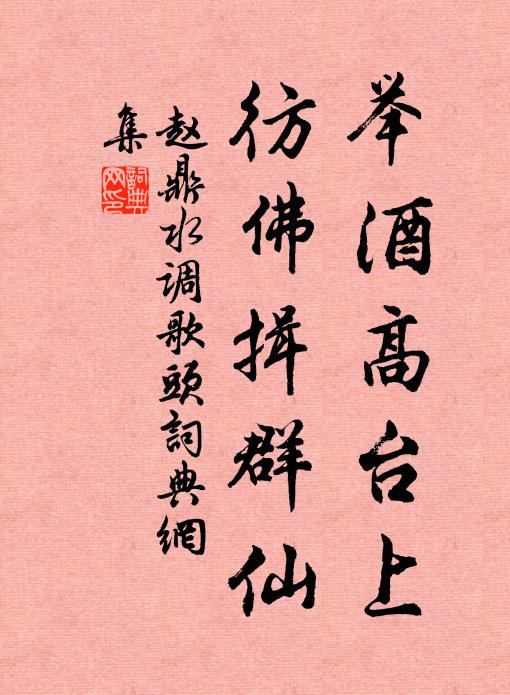 举酒高台上
彷佛揖群仙
赵鼎水调歌头詞典網
集
詞典
网印